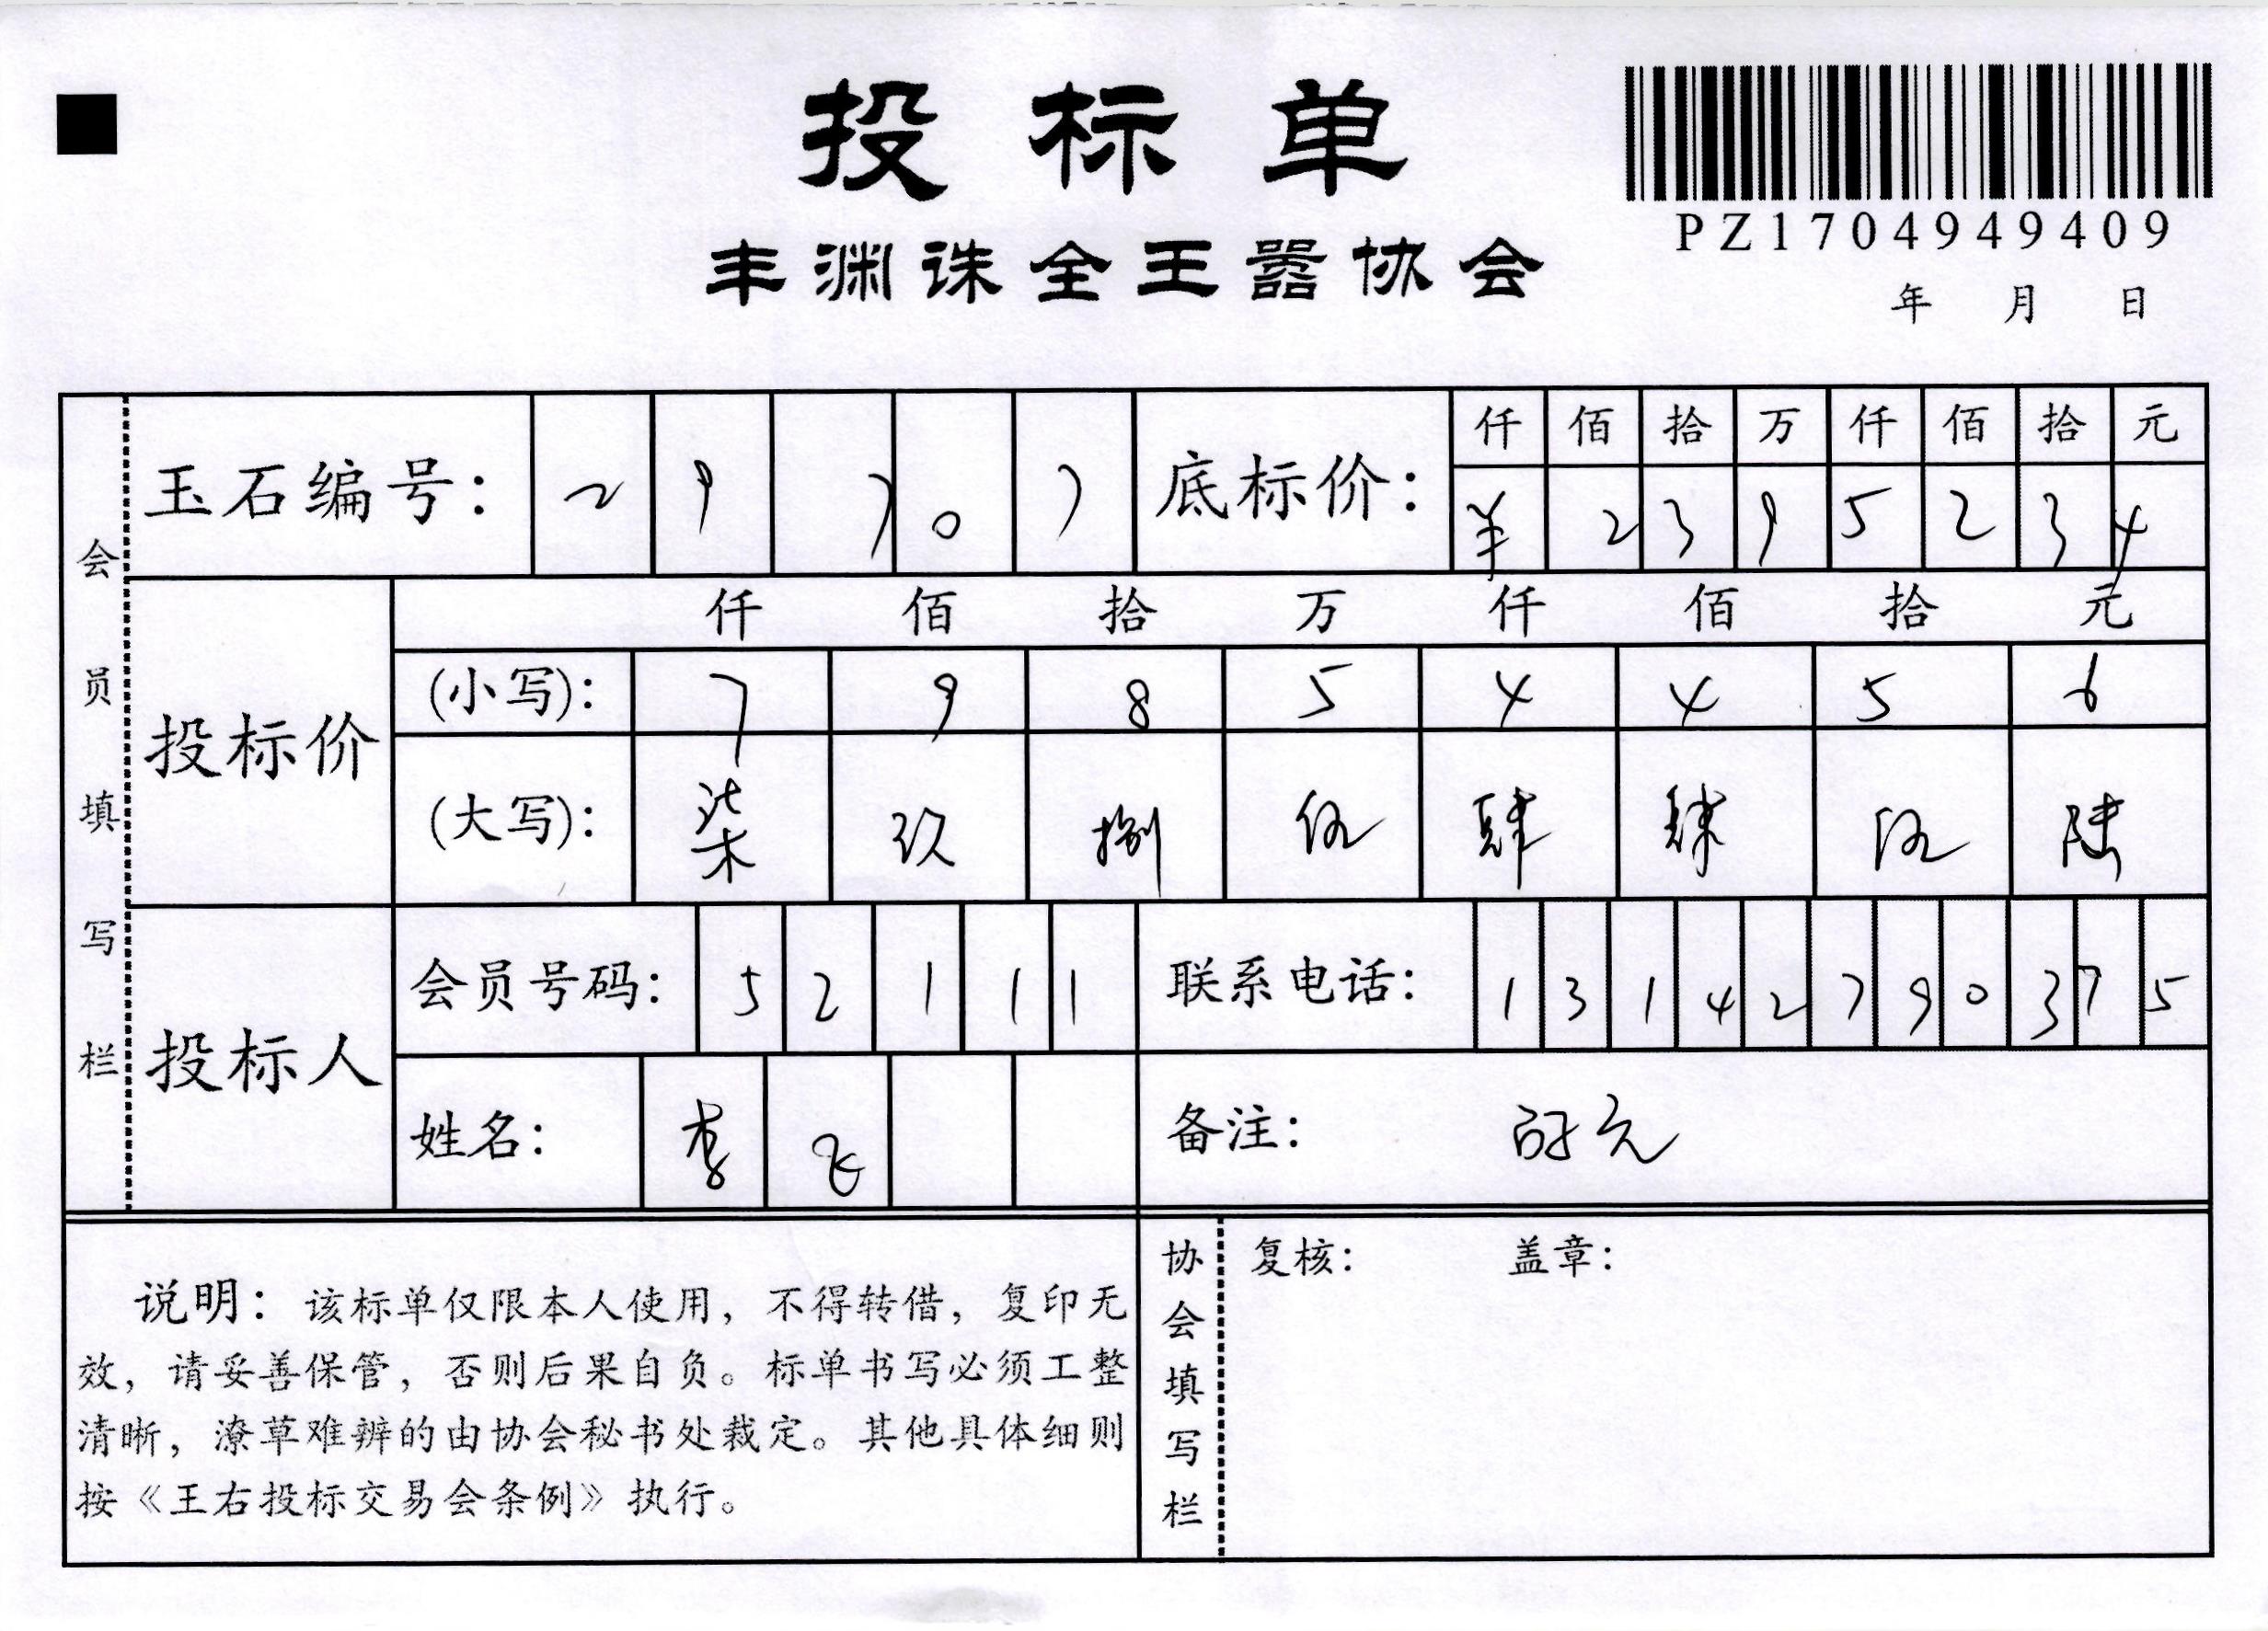 投标单
PZ1704949409
丰渊诛全王嚣协会
年 月 日
会员填写栏
玉石编号: 2 9 7 0 7
底标价: 仟 佰 拾 万 仟 佰 拾 元
¥ 2 3 9 5 2 3 4
投标价
仟 佰 拾 万 仟 佰 拾 元
(小写): 7 9 8 5 4 4 5 6
(大写): 柒 玖 捌 伍 肆 肆 伍 陆
投标人
会员号码: 5 2 1 1 1
联系电话: 1 3 1 4 2 7 9 0 3 7 5
姓名: 李 飞
备注:
说明: 该标单仅限本人使用, 不得转借, 复印无
效, 请妥善保管, 否则后果自负。标单书写必须工整
清晰, 潦草难辨的由协会秘书处裁定。其他具体细则
按《王右投标交易会条例》执行。
协会填写栏
复核: 盖章: